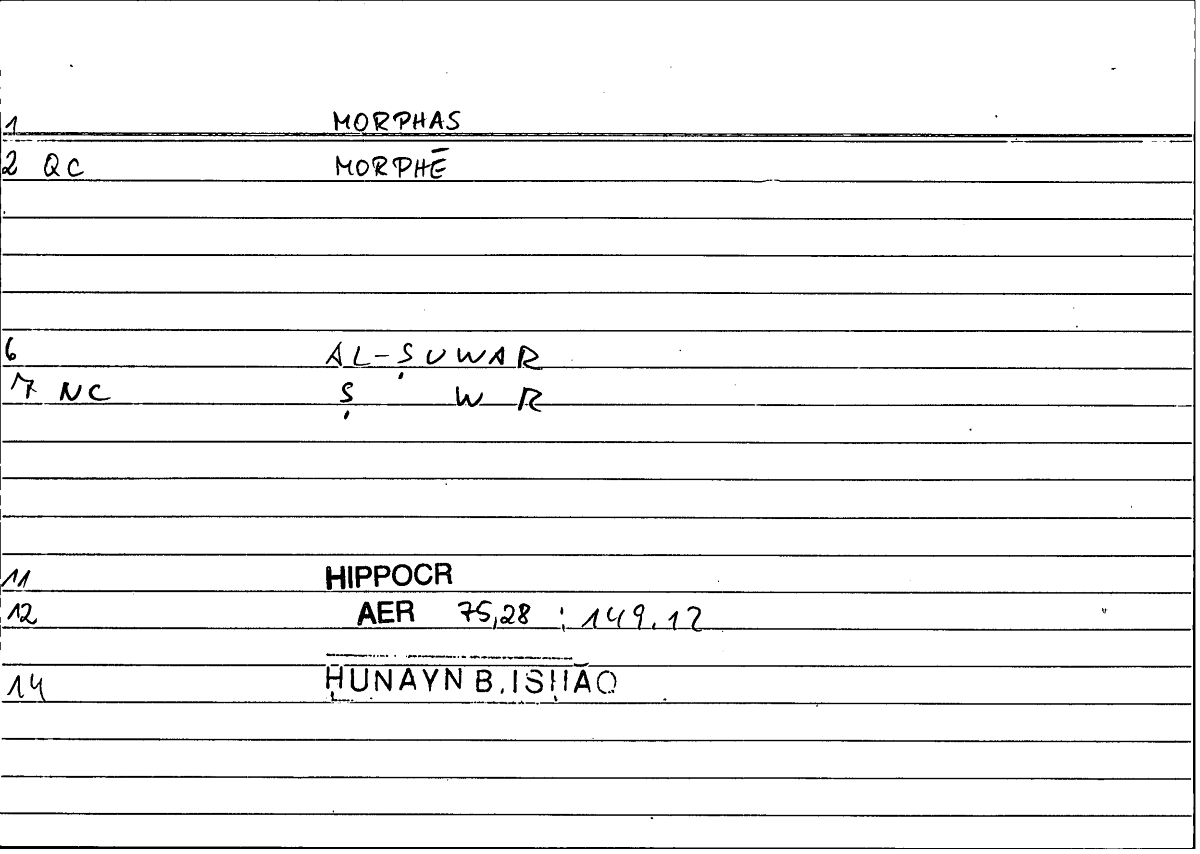 1 MORPHAS
2 QC MORPHĒ
6 AL-ṢUWAR
7 NC Ṣ W R
11 HIPPOCR
12 AER 75,28 ; 149.12
14 ḤUNAYN B. ISḤĀQ